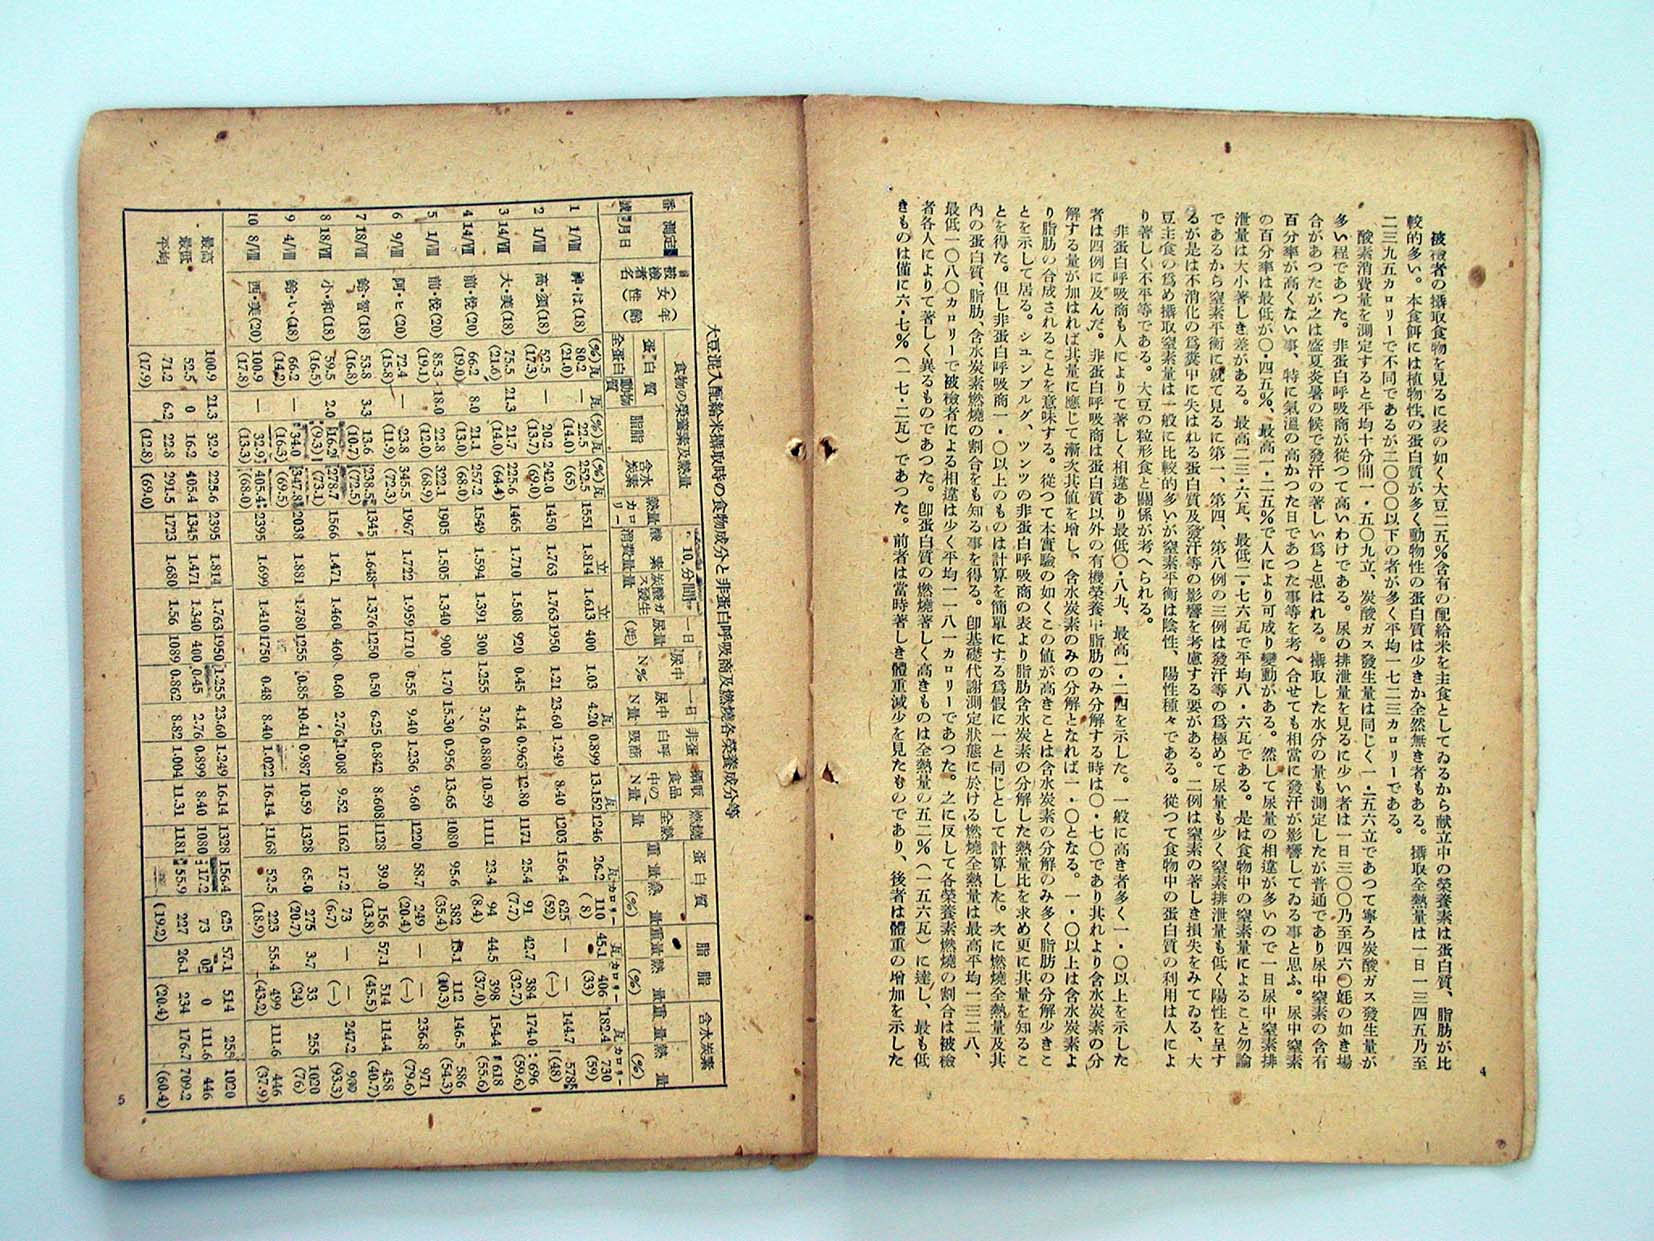 被檢者の攝取食物を見るに表の如く大豆二五%含有の配給米を主食としてゐるから献立中の榮養素は蛋白質、脂肪が比
較的多い。本食餌には植物性の蛋白質が多く動物性の蛋白質は少きか全然無き者もある。攝取全熱量は一日一三四五乃至
二三九五カロリーで不同であるが二〇〇〇以下の者が多く平均一七二三カロリーである。
酸素消費量を測定すると平均十分間一・五〇九立、炭酸ガス發生量は同じく一・五六立であつて寧ろ炭酸ガス發生量が
多い程であつた。非蛋白呼吸商が從つて高いわけである。尿の排泄量を見るに少い者は一日三〇〇乃至四六〇竓の如き場
合があつたが之は盛夏炎暑の候で發汗の著しい爲と思はれる。攝取した水分の量も測定したが普通であり尿中窒素の含有
百分率が高くない事、特に氣溫の高かつた日であつた事等を考へ合せても相當に發汗が影響してゐる事と思ふ。尿中窒素
の百分率は最低が〇・四五%、最高一・二五%で人により可成り變動がある。然して尿量の相違が多いので一日尿中窒素排
泄量は大小著しき差がある。最高二三・六瓦、最低二・七六瓦で平均八・六瓦である。是は食物中の窒素量によること勿論
であるから窒素平衡に就て見るに第一、第四、第八例の三例は發汗等の爲極めて尿量も少く窒素排泄量も低く陽性を呈す
るが是は不消化の爲糞中に失はれる蛋白質及發汗等の影響を考慮する要がある。二例は窒素の著しき損失をみてゐる、大
豆主食の爲め攝取窒素量は一般に比較的多いが窒素平衡は陰性、陽性種々である。從つて食物中の蛋白質の利用は人によ
り著しく不平等である。大豆の粒形食と關係が考へられる。
非蛋白呼吸商も人によりて著しく相違あり最低〇・八九、最高一・二四を示した。一般に高き者多く一・〇以上を示した
者は四例に及んだ。非蛋白呼吸商は蛋白質以外の有機榮養中脂肪のみ分解する時は〇・七〇であり其れより含水炭素の分
解する量が加はれば其量に應じて漸次其値を增し、含水炭素のみの分解となれば一・〇となる。一・〇以上は含水炭素よ
り脂肪の合成されることを意味する。從つて本實驗の如くこの値が高きことは含水炭素の分解のみ多く脂肪の分解少きこ
とを示して居る。シュンブルグ、ツンツの非蛋白呼吸商の表より脂肪含水炭素の分解した熱量比を求め更に其量を知るこ
とを得た。但し非蛋白呼吸商一・〇以上のものは計算を簡單にする爲假に一と同じとして計算した。次に燃燒全熱量及其
內の蛋白質、脂肪、含水炭素燃燒の割合をも知る事を得る。卽基礎代謝測定狀態に於ける燃燒全熱量は最高平均一三二八、
最低一〇八〇カロリーで被檢者による相違は少く平均一一八一カロリーであつた。之に反して各榮養素燃燒の割合は被檢
者各人によりて著しく異るものであつた。卽蛋白質の燃燒著しく高きものは全熱量の五二%(一五六瓦)に達し、最も低
きものは僅に六・七%(一七・二瓦)であつた。前者は當時著しき體重減少を見たものであり、後者は體重の增加を示した
4
大豆混入配給米攝取時の食物成分と非蛋白呼吸商及燃燒各榮養成分等
番號 測定月日 被檢者名(女性)(年齡) 食物の榮養素及熱量 10分間 一日尿量(竓) 尿中N% 一日尿中N量 非蛋白呼吸商 攝取食品中のN量 燃燒全熱量 蛋白質 脂肪 含水炭素
全蛋白 動物 脂肪 含水炭素 熱量カロリー 酸素消費量 炭酸ガス發生量 重量 熱量(%) 重量 熱量(%) 重量 熱量(%)
1 1/Ⅷ 神・は(18) 80.2 (21.0) — 22.5 (14.0) 252.5 (65) 1551 1.814 1.613 400 1.03 4.20 0.899 13.152 1246 26.2 110 (8) 45.1 406 (33) 182.4 730 (59)
2 1/Ⅷ 高・須(18) 52.5 (17.3) — 20.2 (13.7) 242.0 (69.0) 1450 1.763 1.763 1950 1.21 23.60 1.249 8.40 1203 156.4 625 (52) — — (—) 144.7 578 (48)
3 14/Ⅷ 大・美(18) 75.5 (21.6) 21.3 21.7 (14.0) 225.6 (64.4) 1465 1.710 1.508 920 0.45 4.14 0.963 12.80 1171 25.4 91 (7.7) 42.7 384 (32.7) 174.0 696 (59.6)
4 14/Ⅷ 前・俊(20) 66.2 (19.0) 8.0 21.1 (13.0) 257.2 (68.0) 1549 1.594 1.391 300 1.255 3.76 0.880 10.59 1111 23.4 94 (8.4) 44.5 398 (37.0) 154.4 618 (55.6)
5 1/Ⅷ 前・俊(20) 85.3 (19.1) 18.0 22.8 (12.0) 322.1 (68.9) 1905 1.505 1.340 900 1.70 15.30 0.956 13.65 1080 95.6 382 (35.4) 13.1 112 (10.3) 146.5 586 (54.3)
6 9/Ⅷ 阿・ヒ(20) 72.4 (15.8) — 23.8 (11.9) 345.5 (72.3) 1967 1.722 1.959 1710 0.55 9.40 1.236 9.60 1220 58.7 249 (20.4) — — (—) 236.8 971 (79.6)
7 18/Ⅷ 鈴・智(18) 53.8 (16.8) 3.3 13.6 (10.7) 238.5 (72.5) 1345 1.648 1.376 1250 0.50 6.25 0.842 8.608 1128 39.0 156 (13.8) 57.1 514 (45.5) 114.4 458 (40.7)
8 18/Ⅷ 小・和(18) 59.5 (16.5) 2.0 16.2 (9.3) 278.7 (73.1) 1566 1.471 1.460 460 0.60 2.76 1.008 9.52 1162 17.2 73 (6.7) — — (—) 247.2 (93.3)
9 4/Ⅷ 鈴・い(18) 66.2 (14.2) — 34.0 (16.5) 347.8 (69.5) 2038 1.881 1.780 1255 0.85 10.41 0.987 10.59 1328 65.0 275 (20.7) 3.7 33 (24) 255 1020 (76)
10 8/Ⅷ 西・美(20) 100.9 (17.8) — 32.9 (13.3) 405.4 (68.0) 2395 1.699 1.410 1750 0.48 8.40 1.022 16.14 1168 52.5 223 (18.9) 55.4 499 (43.2) 111.6 446 (37.9)
最高 100.9 21.3 32.9 225.6 2395 1.814 1.763 1950 1.255 23.60 1.249 16.14 1328 156.4 625 57.1 514 255 1020
最低 52.5 0 16.2 405.4 1345 1.471 1.340 400 0.45 2.76 0.899 8.40 1080 17.2 73 0 0 111.6 446
平均 71.2 (17.9) 6.2 22.8 (12.8) 291.5 (69.0) 1723 1.680 1.56 1089 0.862 8.82 1.004 11.31 1181 55.9 227 (19.2) 26.1 234 (20.4) 176.7 709.2 (60.4)
5